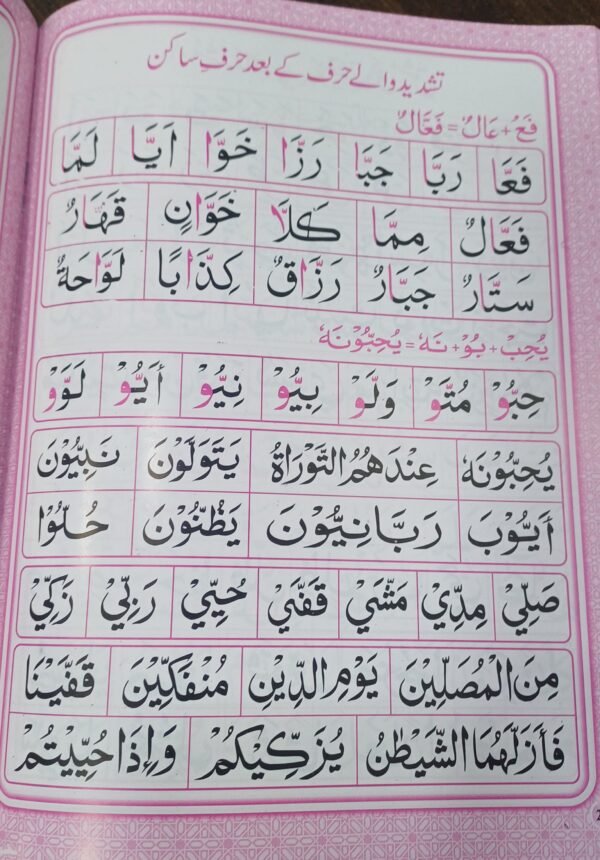 تشدید والے حرف کے بعد حرفِ ساکن
فَعْ + عَالٌ = فَعَّالٌ
فَعَّا رَبَّا جَبَّا رَزَّا خَوَّا اَيَّا لَمَّا
فَعَّالٌ مِمَّا كَلَّا خَوَّانٍ قَهَّارٌ
سَتَّارٌ جَبَّارٌ رَزَّاقٌ كِذَّابًا لَوَّاحَةٌ
يُحِبْ + بُوْ + نَهٗ = يُحِبُّوْنَهٗ
حِبُّوْ مُتَّوْ وَلَّوْ بِيُّوْ نِيُّوْ أَيُّوْ لَوَّوْ
يُحِبُّوْنَهٗ عِنْدَهُمُ التَّوْرَاةُ يَتَوَلَّوْنَ نَبِيُّوْنَ
أَيُّوْبَ رَبَّانِيُّوْنَ يَظُنُّوْنَ حُلُّوْا
صَلِّيْ مِدِّيْ مَشَّيْ قَفَّيْ حُيِّيْ رَبِّيْ زَكِّيْ
مِنَ الْمُصَلِّيْنَ يَوْمِ الدِّيْنِ مُنْفَكِّيْنَ قَفَّيْنَا
فَأَزَلَّهُمَا الشَّيْطٰنُ يُزَكِّيْكُمْ وَإِذَا حُيِّيْتُمْ